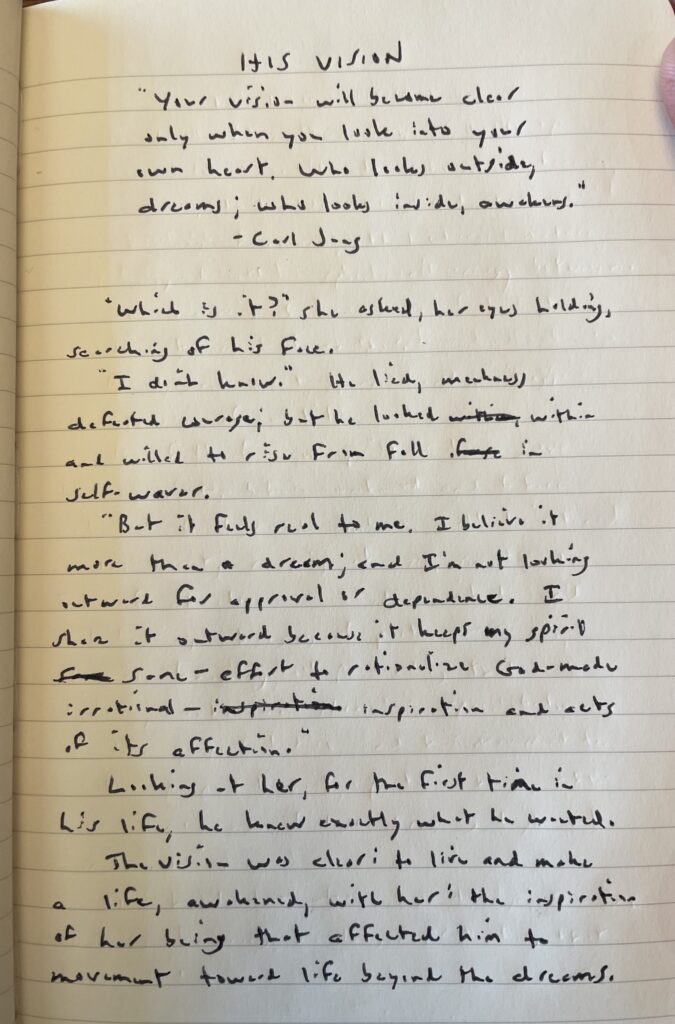 HIS VISION
"Your vision will become clear
only when you look into your
own heart. Who looks outside,
dreams; who looks inside, awakens."
- Carl Jung
"Which is it?" she asked, her eyes holding,
searching of his face.
"I don't know." He lied, meekness
defeated courage; but he looked within
and willed to rise from fall in
self-waver.
"But it feels real to me. I believe it
more than a dream; and I'm not looking
outward for approval or dependence. I
share it outward because it keeps my spirit
sane - effort to rationalize God-made
irrational - inspiration and acts
of its affection."
Looking at her, for the first time in
his life, he knew exactly what he wanted.
The vision was clear: to live and make
a life, awakened, with her: the inspiration
of her being that affected him to
movement toward life beyond the dreams.